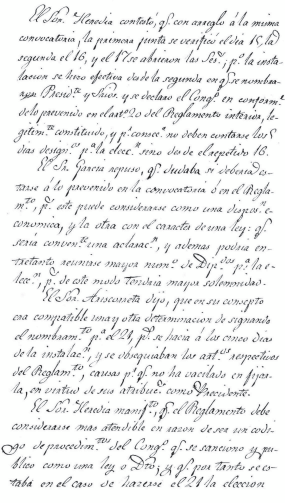 El Sor. Heredia contestó, q.e con arreglo á la misma
convocatoria, la primera junta se verificó el dia 15, la
segunda el 16, y el 17 se abrieron las Ses.s, p.r la insta-
lacion se hizo efectiva desde la segunda en q.e se nombra-
ron Presid.te y Srios. y se declaró el Cong.o en conform.e
de lo prevenido en el art.o 20 del Reglamento interior, le-
gítim.te constituido, y p.r consec.a no deben contarse los 5
dias design.s p.a la elecc.n sino desde el repetido 16.
El Sr. Garcia repuso, q.e dudaba si deberia es-
tarse á lo prevenido en la convocatoria ó en el Regla-
m.to, p.s este puede considerarse como una dispos.n e-
conomica, y la otra con el caracter de una ley: q.e
seria conven.te una aclarac.n, y ademas podria en-
tretanto reunirse mayor num.o de Dip.dos p.a la e-
lecc.n, p.s de este modo tendria mayor solemnidad.
El Sor. Ariscorreta dijo, que en su concepto
era compatible una y otra determinacion designando
el nombram.to p.a el 21, p.s se hacia á los cinco dias
de la instalac.n, y se obsequiaban los art.os respectivos
del Reglam.to, causas p.r q.e no ha vacilado en fijar-
la, en virtud de sus atribuc.s como Presidente.
El Sor. Heredia manif.o, q.e el Reglamento debe
considerarse mas atendible en razon de ser un codi-
go de procedim.tos del Cong.o q.e se sancionó y pu-
blicó como una ley o Dto, y q.e por tanto se es-
taba en el caso de hazerse el 21 la eleccion